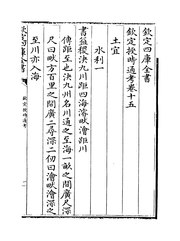 欽定四庫全書
欽定授時通考卷十五
土宜
水利一
書益稷決九川距四海濬畎澮距川
傳距至也決九州名川通之至海一畎之間廣尺深
尺曰畎方百里之間廣二尋深二仞曰澮澮畎深之
至川亦入海
欽定四庫全書
欽定授時通考